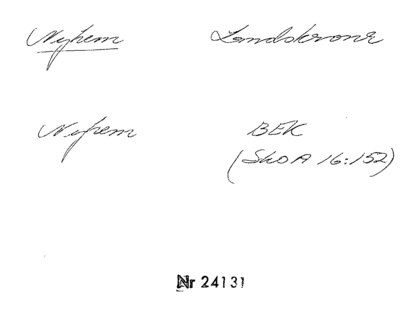 Nyhem Landskrona
Nyhem BEK
(SkoA 16:152)
Nr 24131